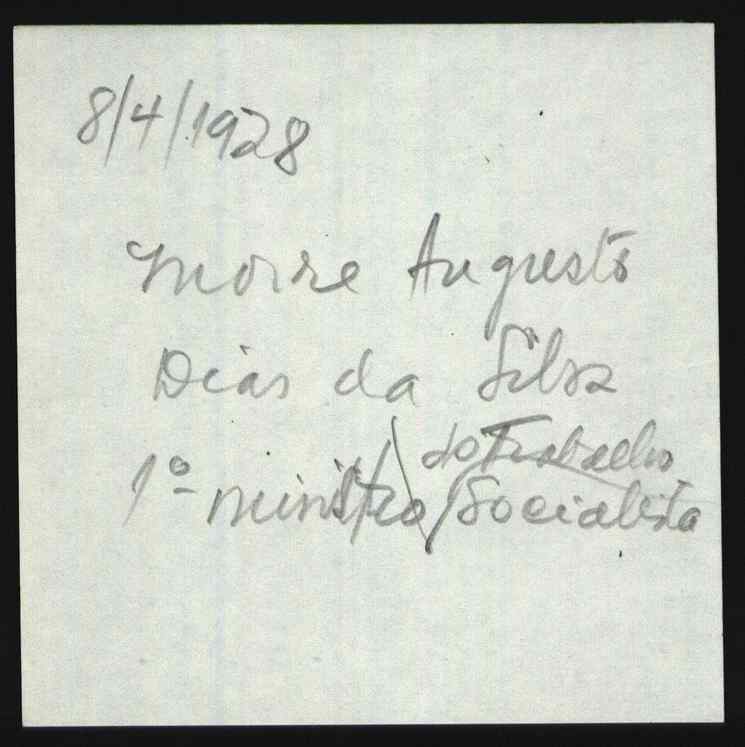 8/4/1928
Morre Augusto
Dias da Silva
do Trabalho
1º ministro Socialista